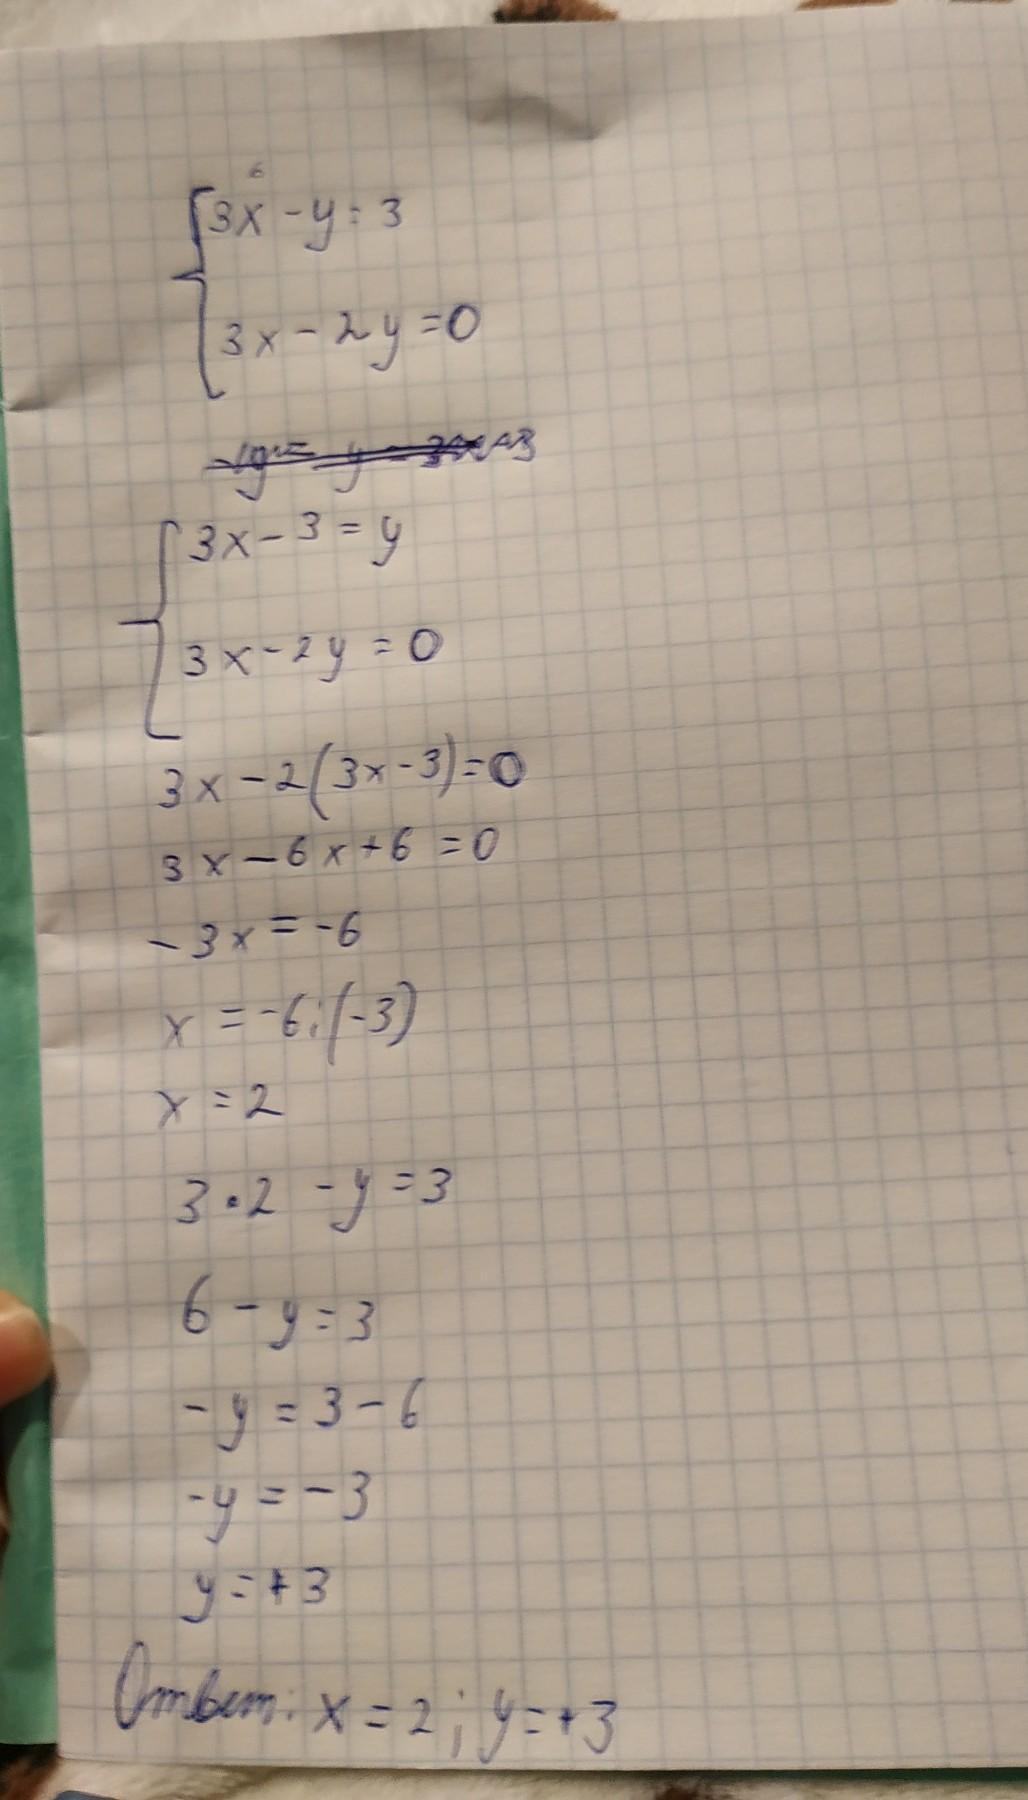 6
3x - y = 3
3x - 2y = 0
3x - 3 = y
3x - 2y = 0
3x - 2(3x - 3) = 0
3x - 6x + 6 = 0
- 3x = -6
x = -6 : (-3)
x = 2
3 • 2 - y = 3
6 - y = 3
- y = 3 - 6
- y = - 3
y = + 3
Ответ: x = 2 ; y = + 3